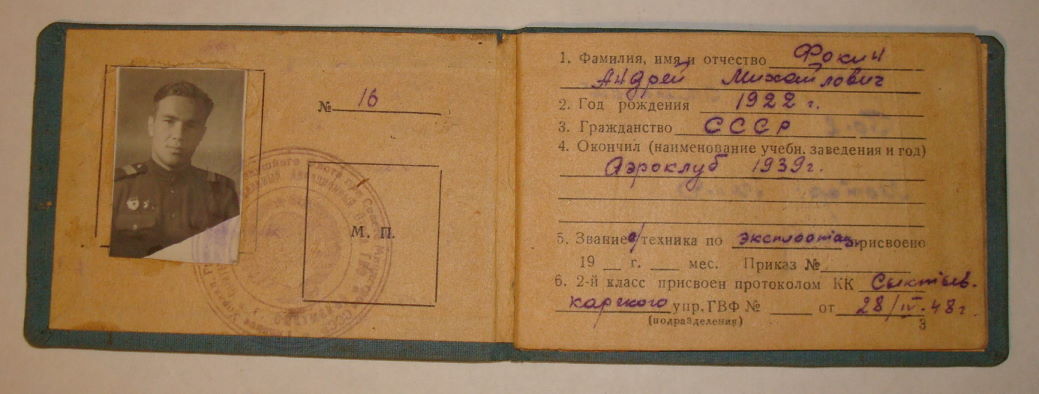 № 16
М. П.
1. Фамилия, имя и отчество Фокин
Андрей Михайлович
2. Год рождения 1922 г.
3. Гражданство СССР
4. Окончил (наименование учебн. заведения и год)
Аэроклуб 1939г.
5. Звание техника по эксплоатац. присвоено
19 г. мес. Приказ №
6. 2-й класс присвоен протоколом КК Сыктыв-
карского упр. ГВФ № от 28/IV-48г.
(подразделения)
3